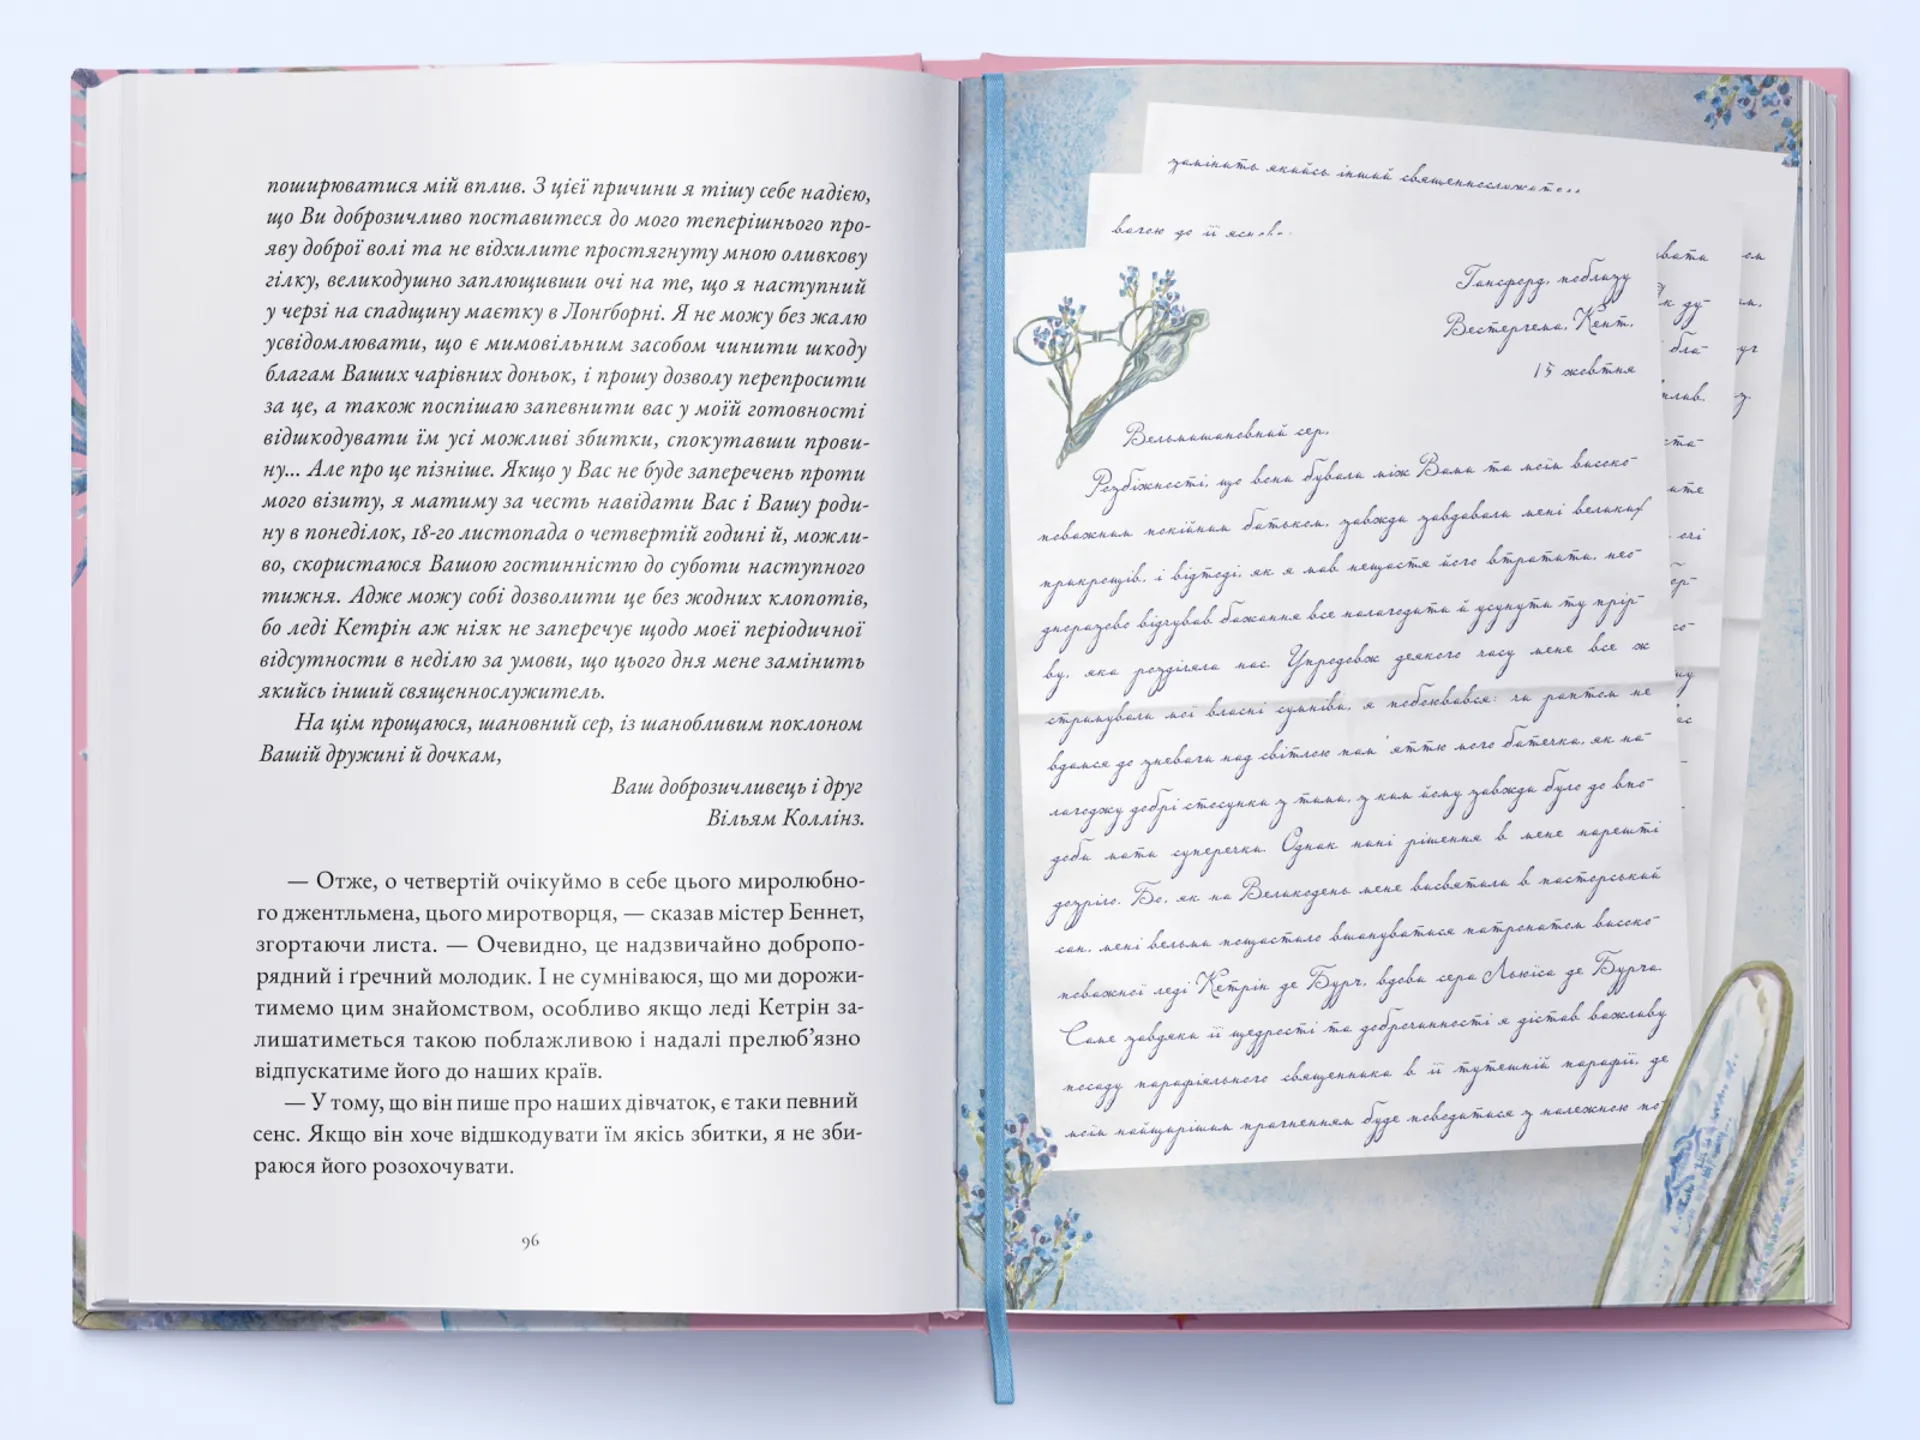 поширюватися мій вплив. З цієї причини я тішу себе надією,
що Ви доброзичливо поставитеся до мого теперішнього про-
яву доброї волі та не відхилите простягнуту мною оливкову
гілку, великодушно заплющивши очі на те, що я наступний
у черзі на спадщину маєтку в Лонґборні. Я не можу без жалю
усвідомлювати, що є мимовільним засобом чинити шкоду
благам Ваших чарівних доньок, і прошу дозволу перепросити
за це, а також поспішаю запевнити вас у моїй готовності
відшкодувати їм усі можливі збитки, спокутавши прови-
ну... Але про це пізніше. Якщо у Вас не буде заперечень проти
мого візиту, я матиму за честь навідати Вас і Вашу роди-
ну в понеділок, 18-го листопада о четвертій годині й, можли-
во, скористаюся Вашою гостинністю до суботи наступного
тижня. Адже можу собі дозволити це без жодних клопотів,
бо леді Кетрін аж ніяк не заперечує щодо моєї періодичної
відсутности в неділю за умови, що цього дня мене замінить
якийсь інший священнослужитель.
На цім прощаюся, шановний сер, із шанобливим поклоном
Вашій дружині й дочкам,
Ваш доброзичливець і друг
Вільям Коллінз.
— Отже, о четвертій очікуймо в себе цього миролюбно-
го джентльмена, цього миротворця, — сказав містер Беннет,
згортаючи листа. — Очевидно, це надзвичайно добропо-
рядний і ґречний молодик. І не сумніваюся, що ми дорожи-
тимемо цим знайомством, особливо якщо леді Кетрін за-
лишатиметься такою поблажливою і надалі прелюб’язно
відпускатиме його до наших країв.
— У тому, що він пише про наших дівчаток, є таки певний
сенс. Якщо він хоче відшкодувати їм якісь збитки, я не зби-
раюся його розохочувати.
96
замінить якийсь інший священнослужите..
вагою до її ясно..
Гансфорд, поблизу
Вестергема, Кент,
15 жовтня
Вельмишановний сер,
Розбіжності, що вони бували між Вами та моїм високо-
поважним покійним батьком, завжди завдавали мені великих
прикрощів, і відтоді, як я мав нещастя його втратити, нео-
дноразово відчував бажання все налагодити й усунути ту прір-
ву, яка розділяла нас. Упродовж деякого часу мене все ж
стримували мої власні сумніви, я побоювався: чи раптом не
вдамся до зневаги над світлою пам'яттю мого батечка, як на-
лагоджу добрі стосунки з тими, з ким йому завжди було до впо-
доби мати суперечки. Однак нині рішення в мене нарешті
дозріло. Бо, як на Великдень мене висвятили в пасторський
сан, мені вельми пощастило вшануватися патронатом високо-
поважної леді Кетрін де Бурґ, вдови сера Льюїса де Бурґа.
Саме завдяки її щедрості та доброчинності я дістав важливу
посаду парафіяльного священника в її тутешній парафії, де
моїм найщирішим прагненням буде поводитися з належною по-